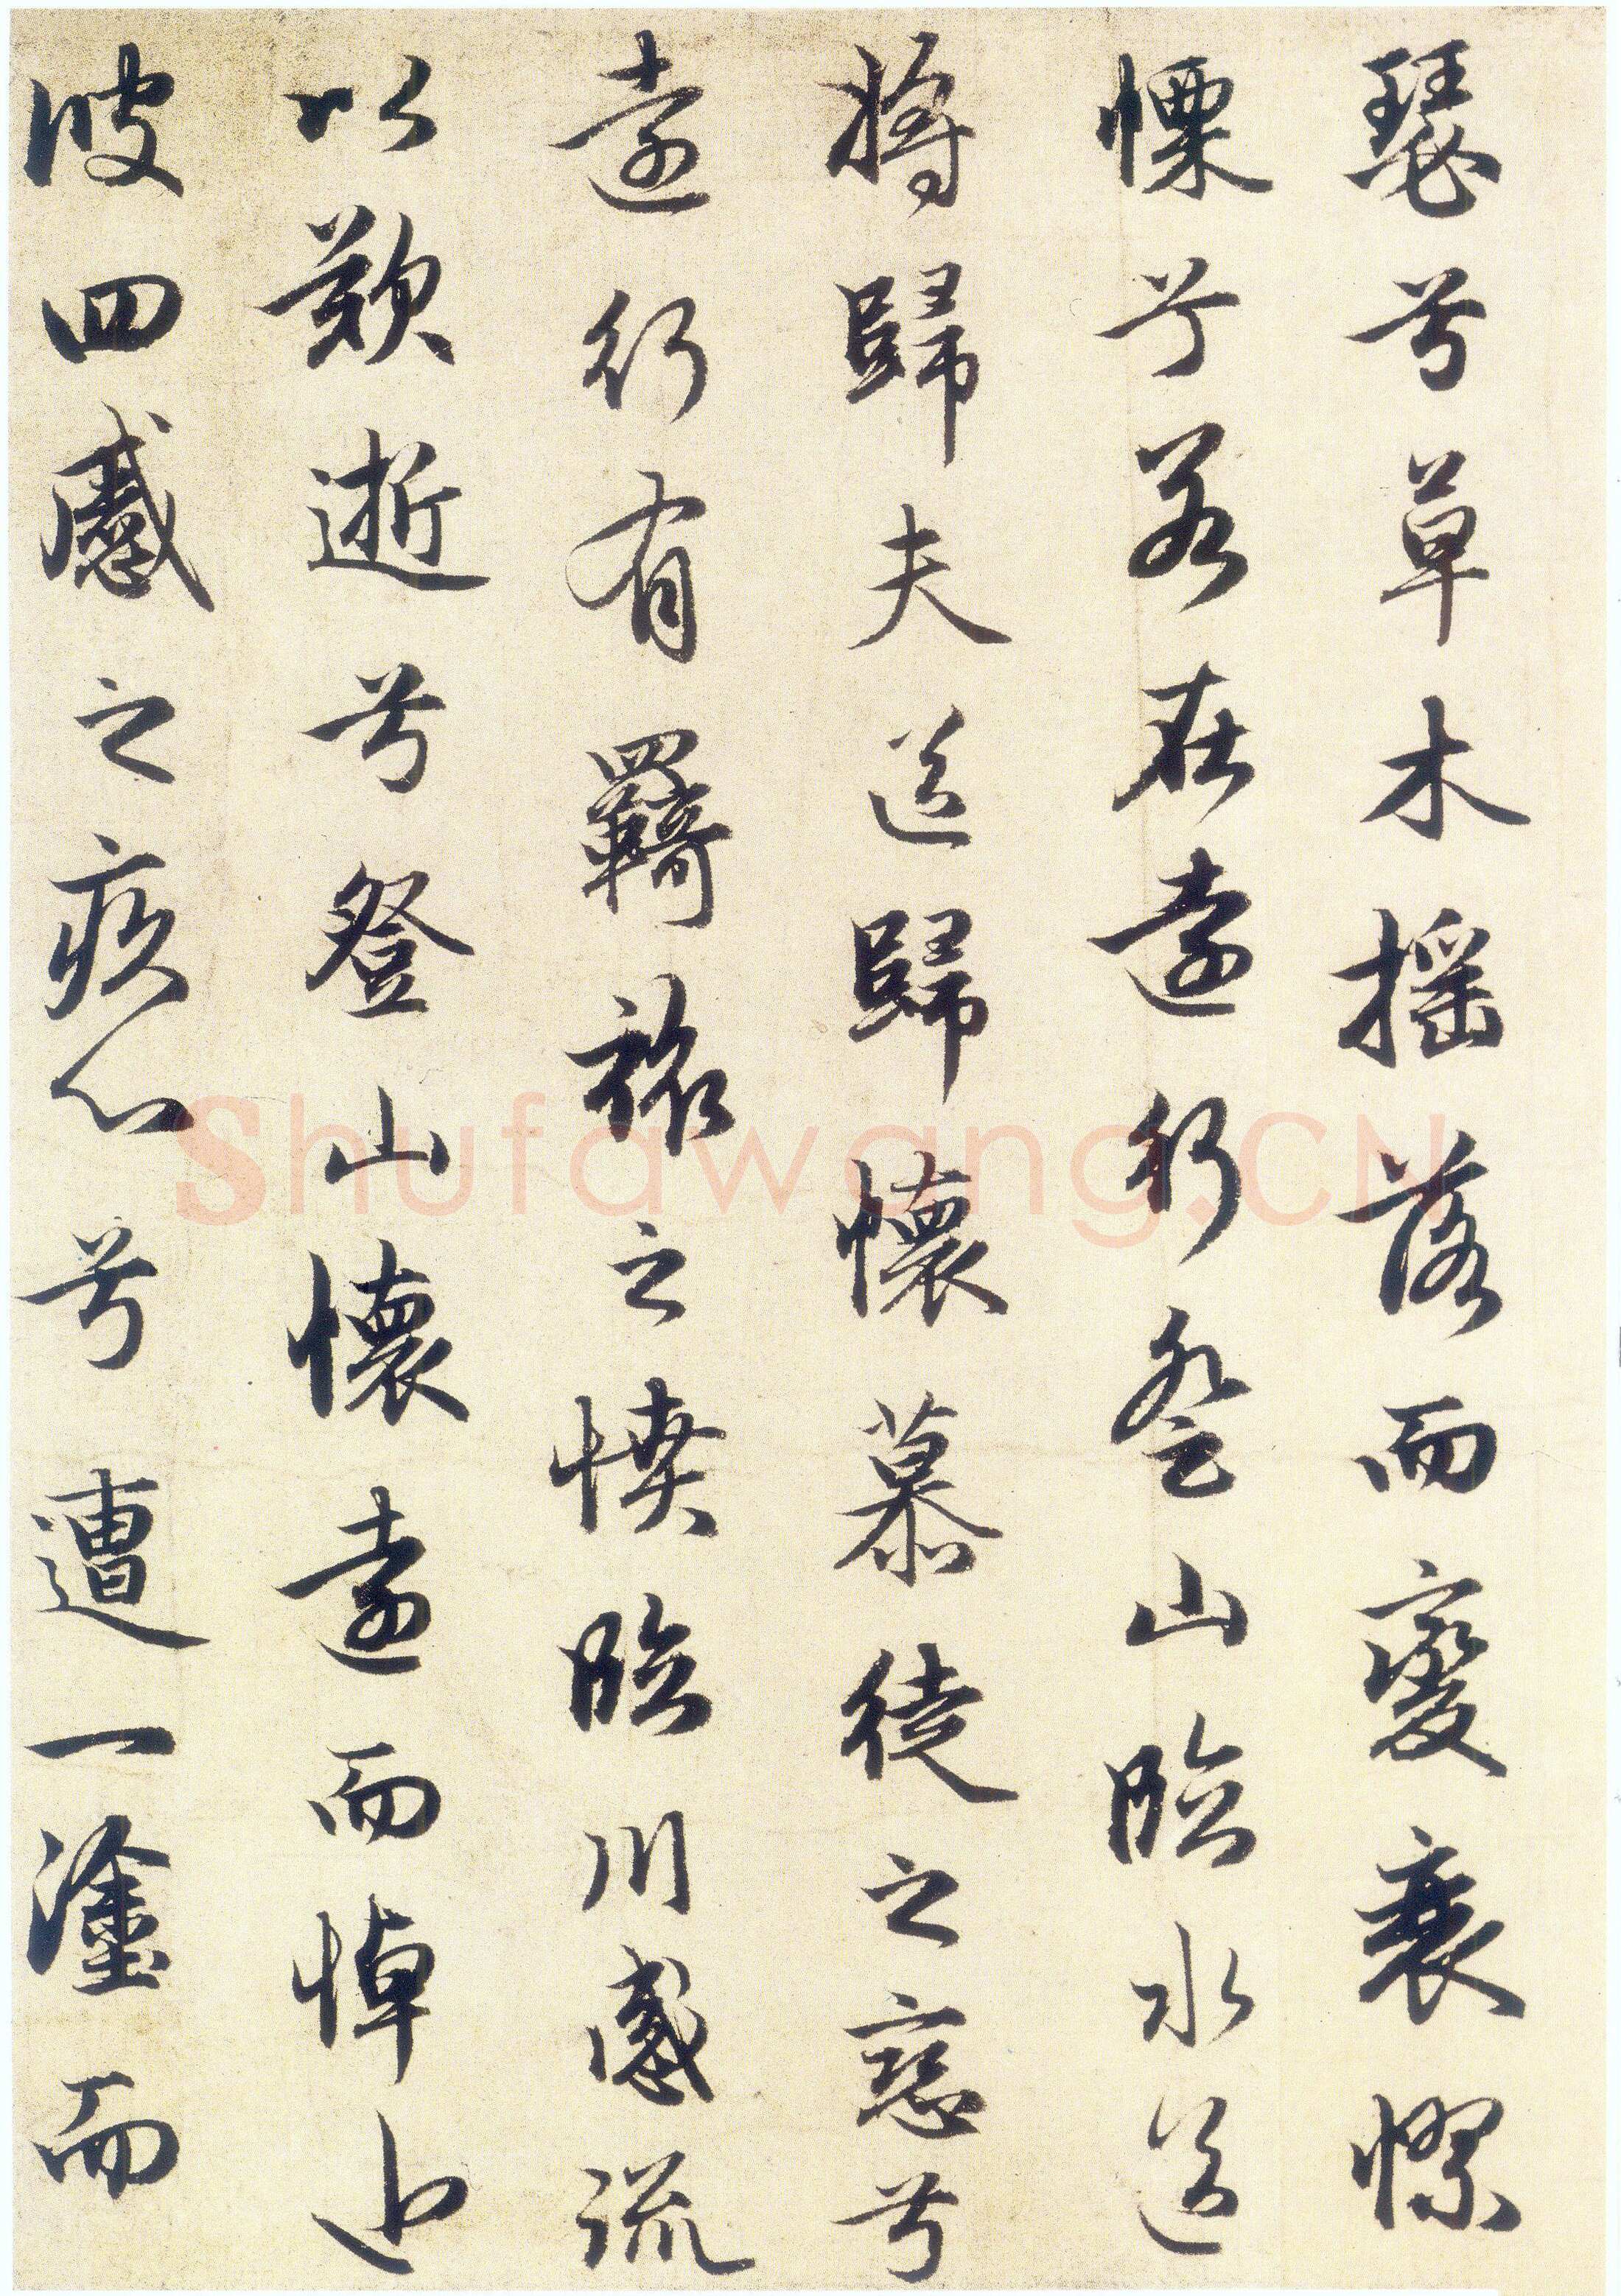 瑟兮草木摇落而變衰憭
慄兮若在遠行登山臨水送
將歸夫送歸懷慕徒之戀兮
遠行有羈旅之憤臨川感流
以歎逝兮登山懷遠而悼近
彼四慼之疚心兮遭一塗而
Shufawang.CN